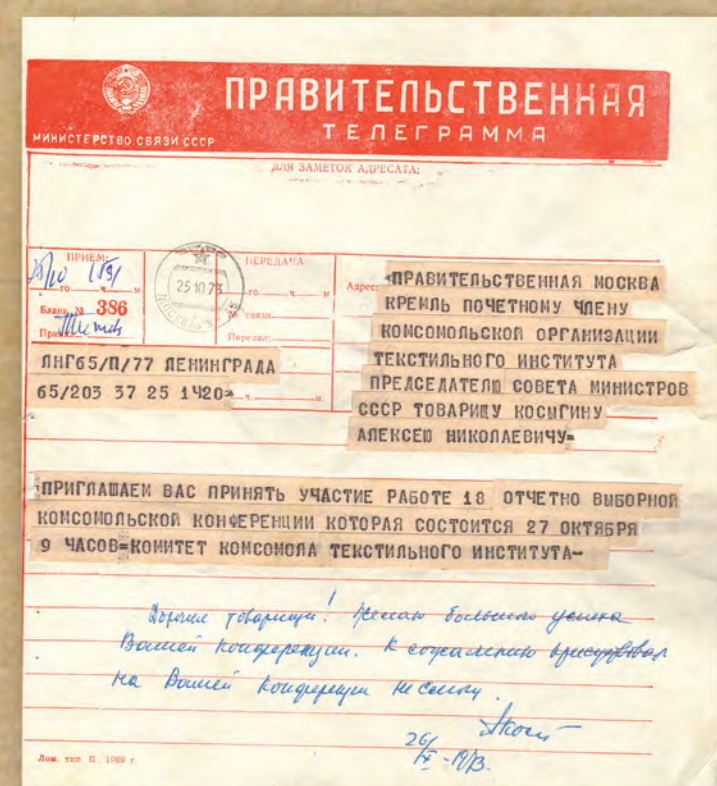 ПРАВИТЕЛЬСТВЕННАЯ
ТЕЛЕГРАММА
МИНИСТЕРСТВО СВЯЗИ СССР
ДЛЯ ЗАМЕТОК АДРЕСАТА:
ПРИЕМ:
го ч. м
Бланк № 386
25 10 73
МОСКВА
ПЕРЕДАЧА:
го ч. м
№ связи
Передал:
ЛНГ65/П/77 ЛЕНИНГРАДА
65/203 37 25 1420=
Адрес:
=ПРАВИТЕЛЬСТВЕННАЯ МОСКВА
КРЕМЛЬ ПОЧЕТНОМУ ЧЛЕНУ
КОМСОМОЛЬСКОЙ ОРГАНИЗАЦИИ
ТЕКСТИЛЬНОГО ИНСТИТУТА
ПРЕДСЕДАТЕЛЮ СОВЕТА МИНИСТРОВ
СССР ТОВАРИЩУ КОСЫГИНУ
АЛЕКСЕЮ НИКОЛАЕВИЧУ=
=ПРИГЛАШАЕМ ВАС ПРИНЯТЬ УЧАСТИЕ РАБОТЕ 18 ОТЧЕТНО ВЫБОРНОЙ
КОМСОМОЛЬСКОЙ КОНФЕРЕНЦИИ КОТОРАЯ СОСТОИТСЯ 27 ОКТЯБРЯ
9 ЧАСОВ=КОМИТЕТ КОМСОМОЛА ТЕКСТИЛЬНОГО ИНСТИТУТА-
Дорогие товарищи! Желаю большого успеха
Вашей конференции. К сожалению присутствовать
на Вашей конференции не смогу.
26/X-1973.
Лом. тип. П. 1969 г.